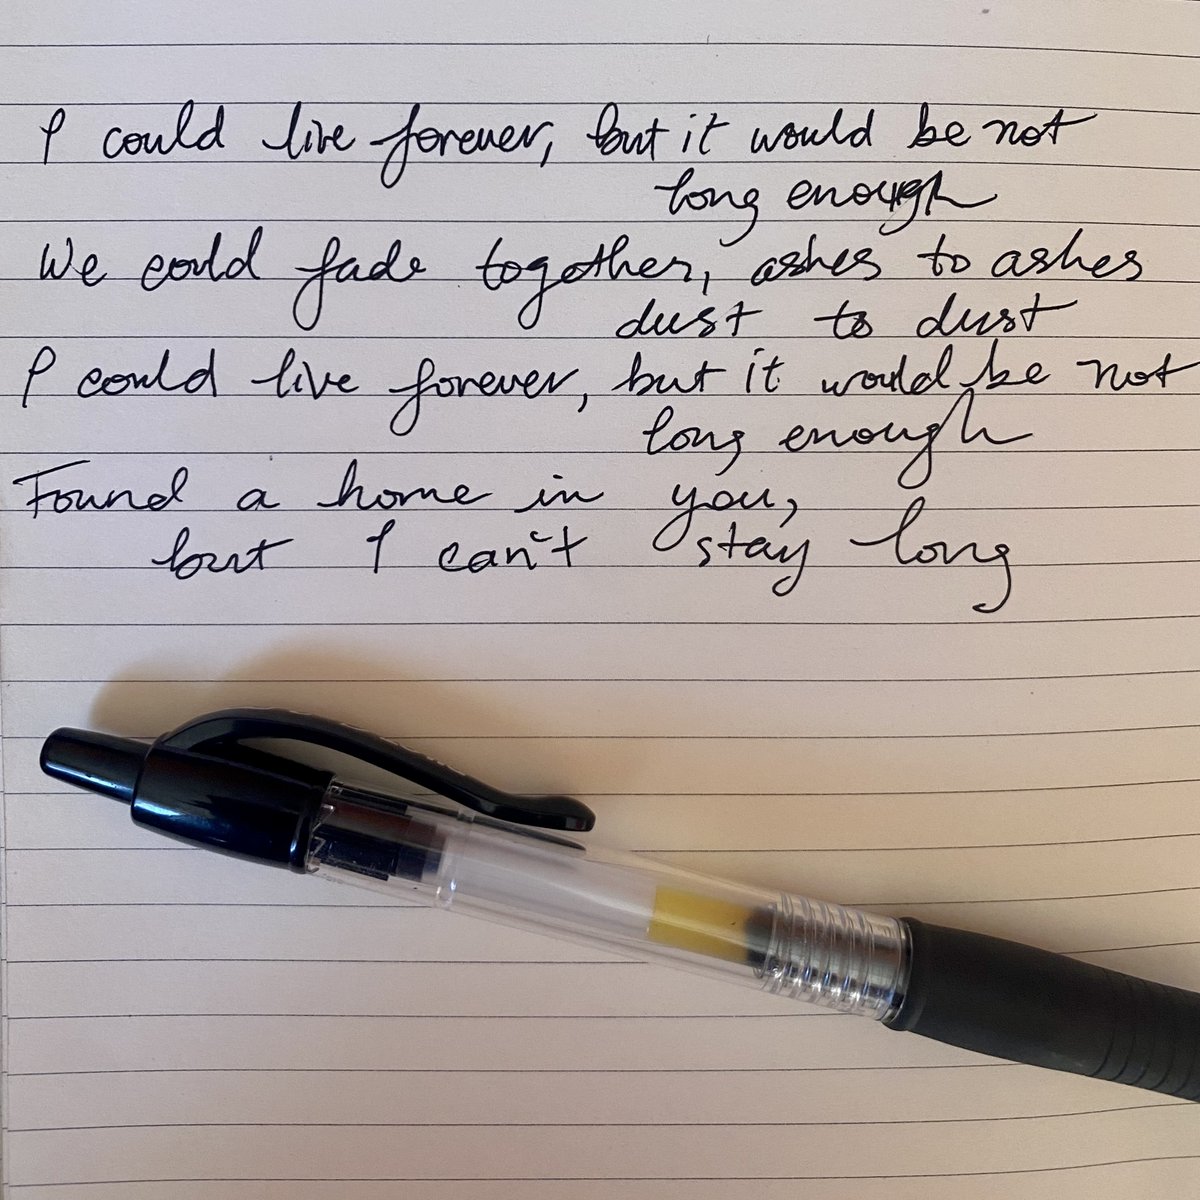 I could live forever, but it would be not
long enough
We could fade together, ashes to ashes
dust to dust
I could live forever, but it would be not
long enough
Found a home in you,
but I can't stay long